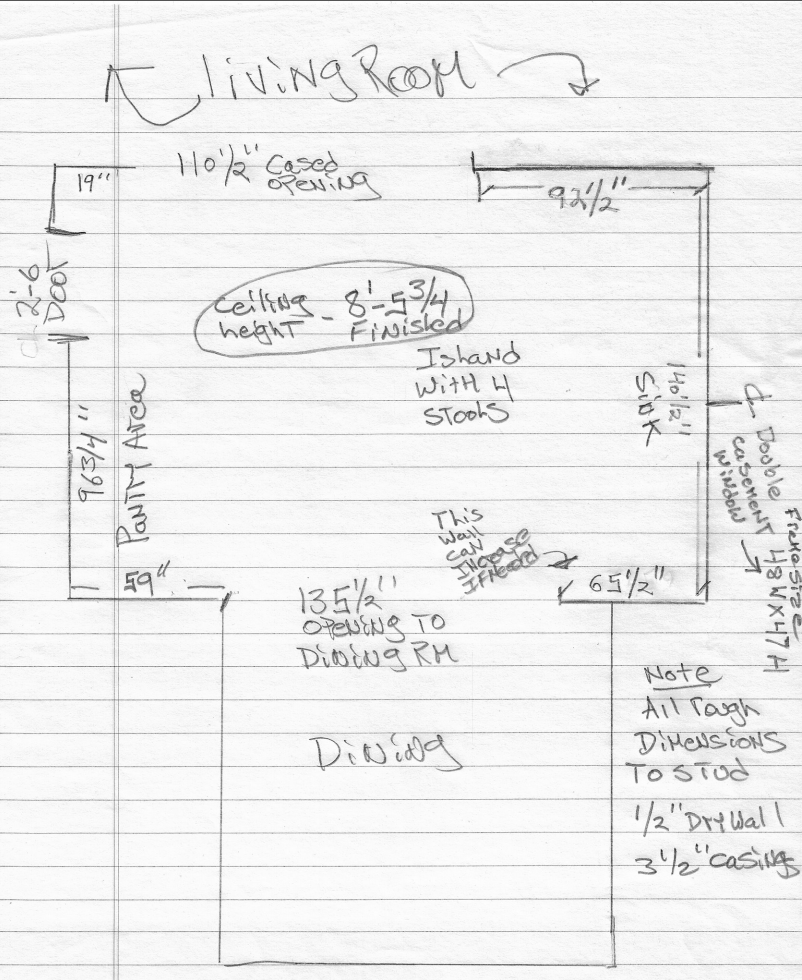 Living Room
19"
110 1/2" Cased
Opening
92 1/2"
2'-6
Door
Ceiling
height - 8'-5 3/4
Finished
Island
With 4
Stools
140 1/2"
Sink
Double
casement
window
Frame Size
48 W X 47 H
96 3/4"
Pantry Area
This
Wall
can
Increase
If Needed
59"
135 1/2"
Opening To
Dining RM
65 1/2"
Dining
Note
All rough
Dimensions
To stud
1/2" Drywall
3 1/2" casings